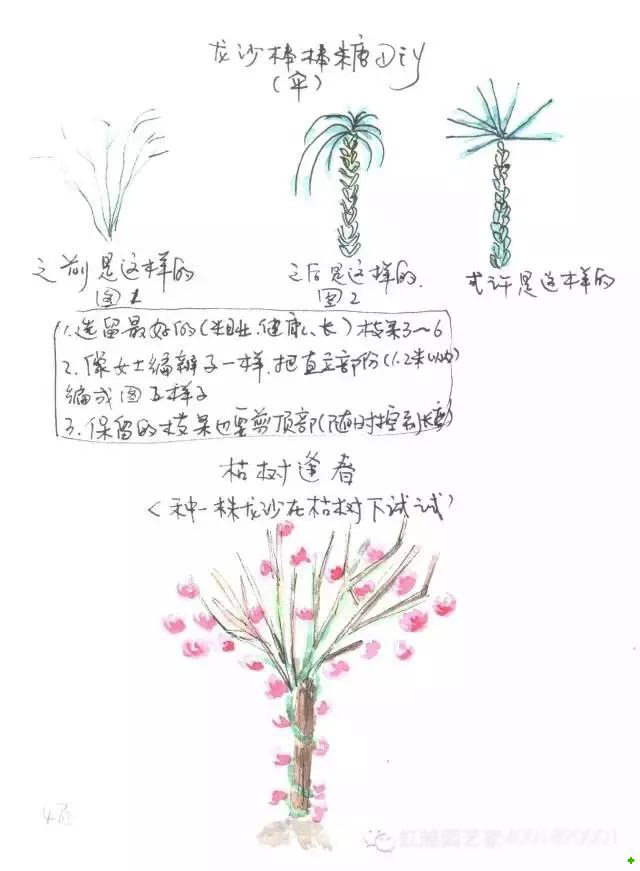 龙沙棒棒糖Diy
(伞)
之前是这样的
图1
之后是这样的.
图2
或许是这样的
1.选留最好的(粗壮.健康、长)枝条3~6
2.像女士编辫子一样.把直立部份(1.2米以内)
编成图2样子
3.保留的枝条也要剪顶部(随时控制长度)
枯树逢春
<种一株龙沙在枯树下试试>
4页
虹越园艺家4001890001